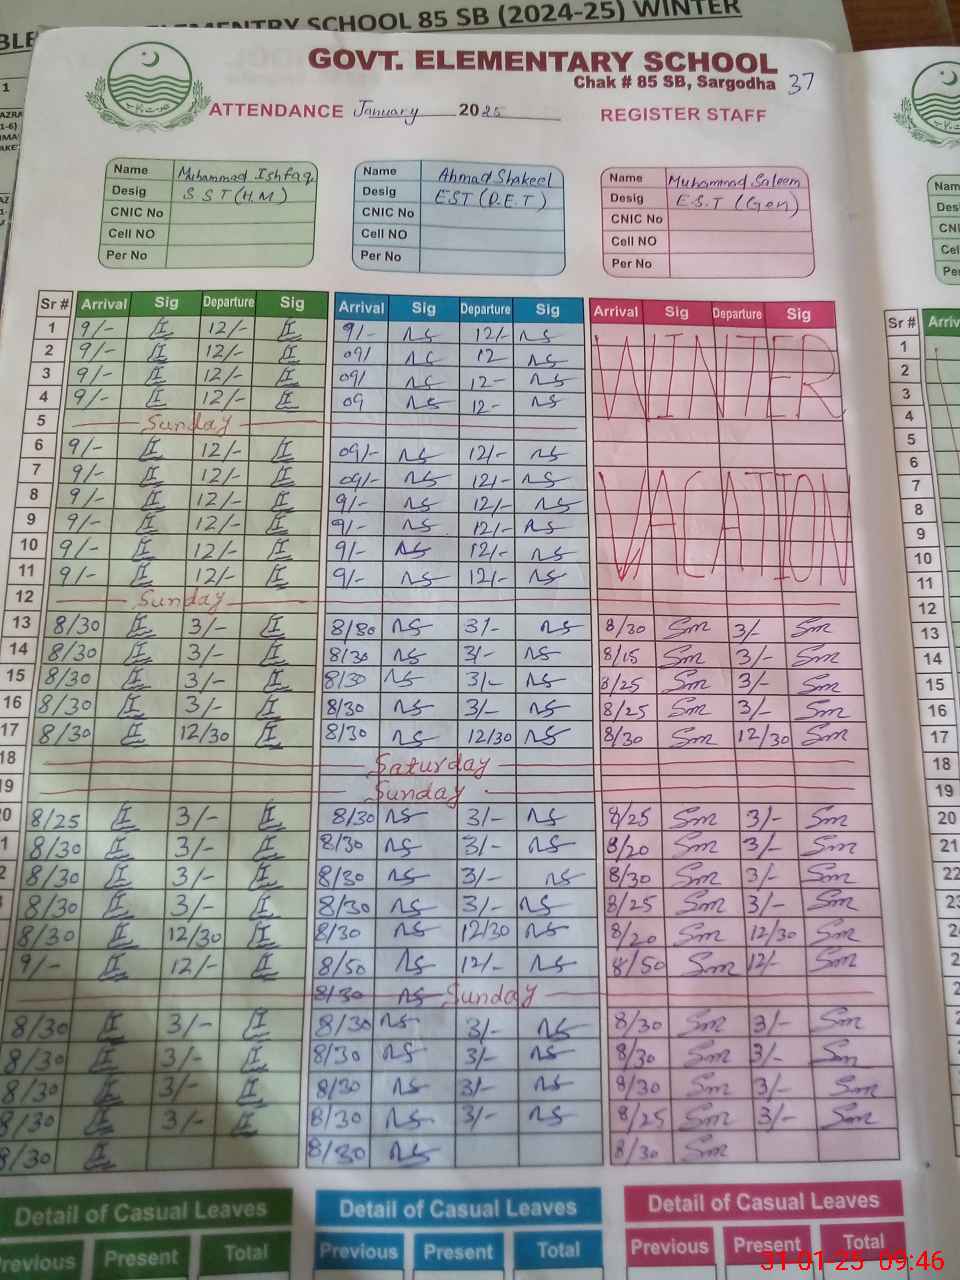 ELEMENTRY SCHOOL 85 SB (2024-25) WINTER
GOVT. ELEMENTARY SCHOOL
Chak # 85 SB, Sargodha 37
ATTENDANCE January 2025 REGISTER STAFF
Name Muhammad Ishfaq Name Ahmad Shakeel Name Muhammad Saleem
Desig S S T (H.M) Desig EST (P.E.T) Desig E.S.T (Gen)
CNIC No CNIC No CNIC No
Cell NO Cell NO Cell NO
Per No Per No Per No
Sr # Arrival Sig Departure Sig Arrival Sig Departure Sig Arrival Sig Departure Sig Sr #
1 9/- 12/- 9/- ns 12/- ns WINTER 1
2 9/- 12/- 09/ ns 12 ns 2
3 9/- 12/- 09/ ns 12- ns 3
4 9/- 12/- 09 ns 12- ns 4
5 Sunday 5
6 9/- 12/- 09/- ns 12/- ns 6
7 9/- 12/- 09/- ns 12/- ns VACATION 7
8 9/- 12/- 9/- ns 12/- ns 8
9 9/- 12/- 9/- ns 12/- ns 9
10 9/- 12/- 9/- ns 12/- ns 10
11 9/- 12/- 9/- ns 12/- ns 11
12 Sunday 12
13 8/30 3/- 8/80 ns 3/- ns 8/30 Sm 3/- Sm 13
14 8/30 3/- 8/30 ns 3/- ns 8/15 Sm 3/- Sm 14
15 8/30 3/- 8/30 ns 3/- ns 8/25 Sm 3/- Sm 15
16 8/30 3/- 8/30 ns 3/- ns 8/25 Sm 3/- Sm 16
17 8/30 12/30 8/30 ns 12/30 ns 8/30 Sm 12/30 Sm 17
18 Saturday 18
19 Sunday 19
8/25 3/- 8/30 ns 3/- ns 8/25 Sm 3/- Sm 20
8/30 3/- 8/30 ns 3/- ns 8/20 Sm 3/- Sm 21
8/30 3/- 8/30 ns 3/- ns 8/30 Sm 3/- Sm 22
8/30 3/- 8/30 ns 3/- ns 8/25 Sm 3/- Sm
8/30 12/30 8/30 ns 12/30 ns 8/20 Sm 12/30 Sm
9/- 12/- 8/50 ns 12/- ns 8/50 Sm 12/- Sm
8/30 ns Sunday
8/30 3/- 8/30 ns 3/- ns 8/30 Sm 3/- Sm
8/30 3/- 8/30 ns 3/- ns 8/30 Sm 3/- Sm
8/30 3/- 8/30 ns 3/- ns 8/30 Sm 3/- Sm
8/30 3/- 8/30 ns 3/- ns 8/25 Sm 3/- Sm
8/30 8/30 ns 8/30 Sm
Detail of Casual Leaves Detail of Casual Leaves Detail of Casual Leaves
Previous Present Total Previous Present Total Previous Present Total
31-01-25 09:46